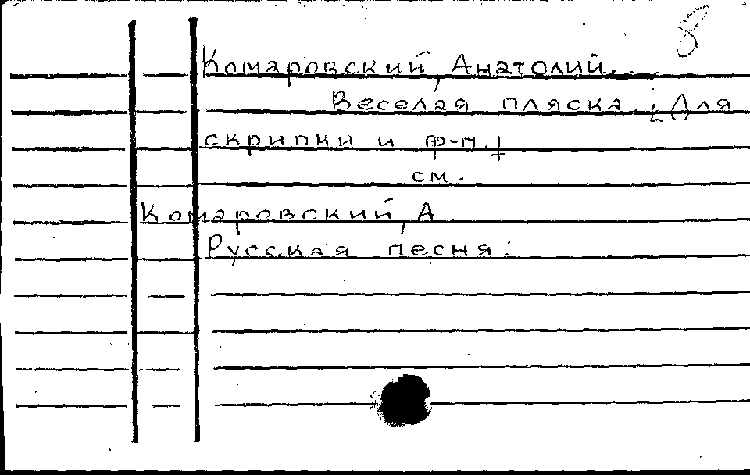 Комаровский, Анатолий.
Веселая пляска. [Для
скрипки и ф-п.]
см.
Комаровский, А
Русская песня.